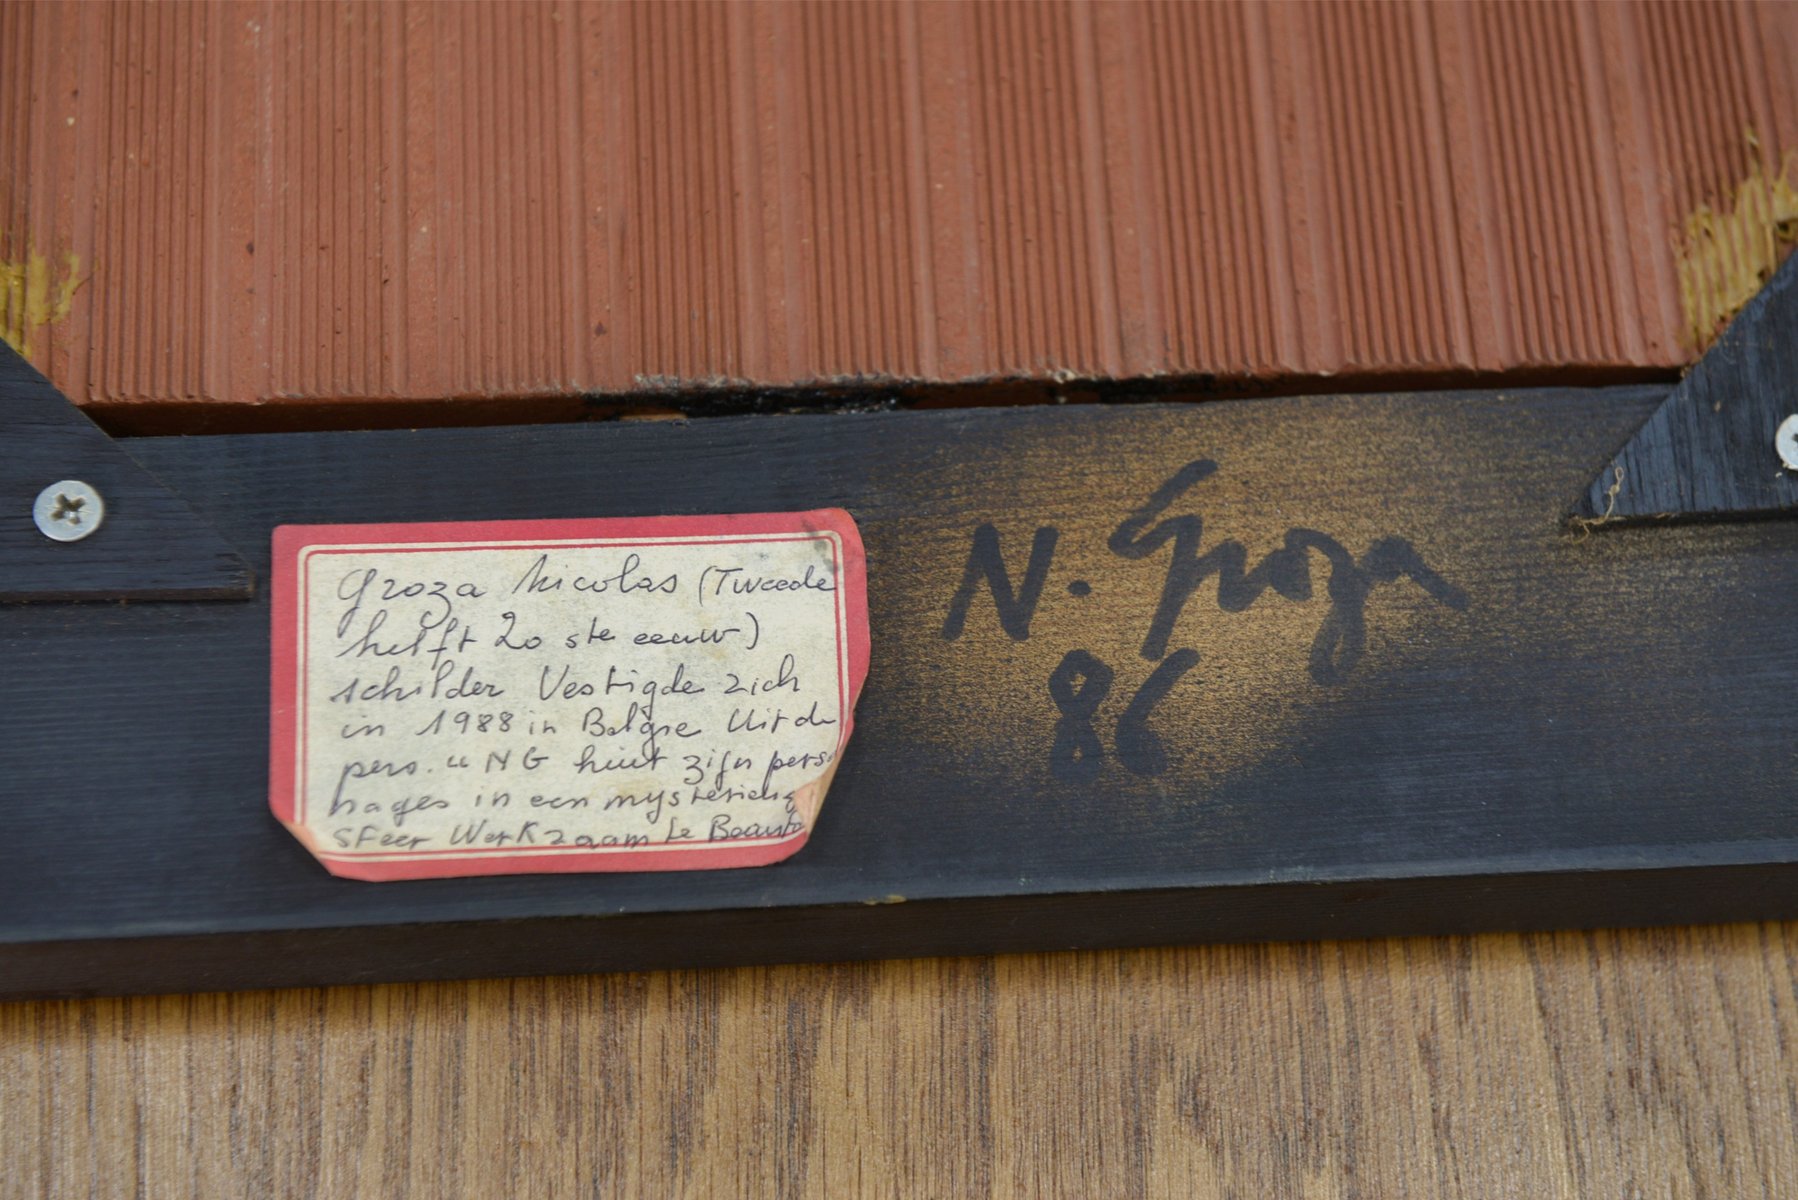 Groza Nicolas (Tweede
helft 20 ste eeuw)
schilder Vestigde zich
in 1988 in Belgie Uit de
pers. "NG hult zijn perso
nages in een mysterieuz
sFeer Werkzaam te
N. Groza
86